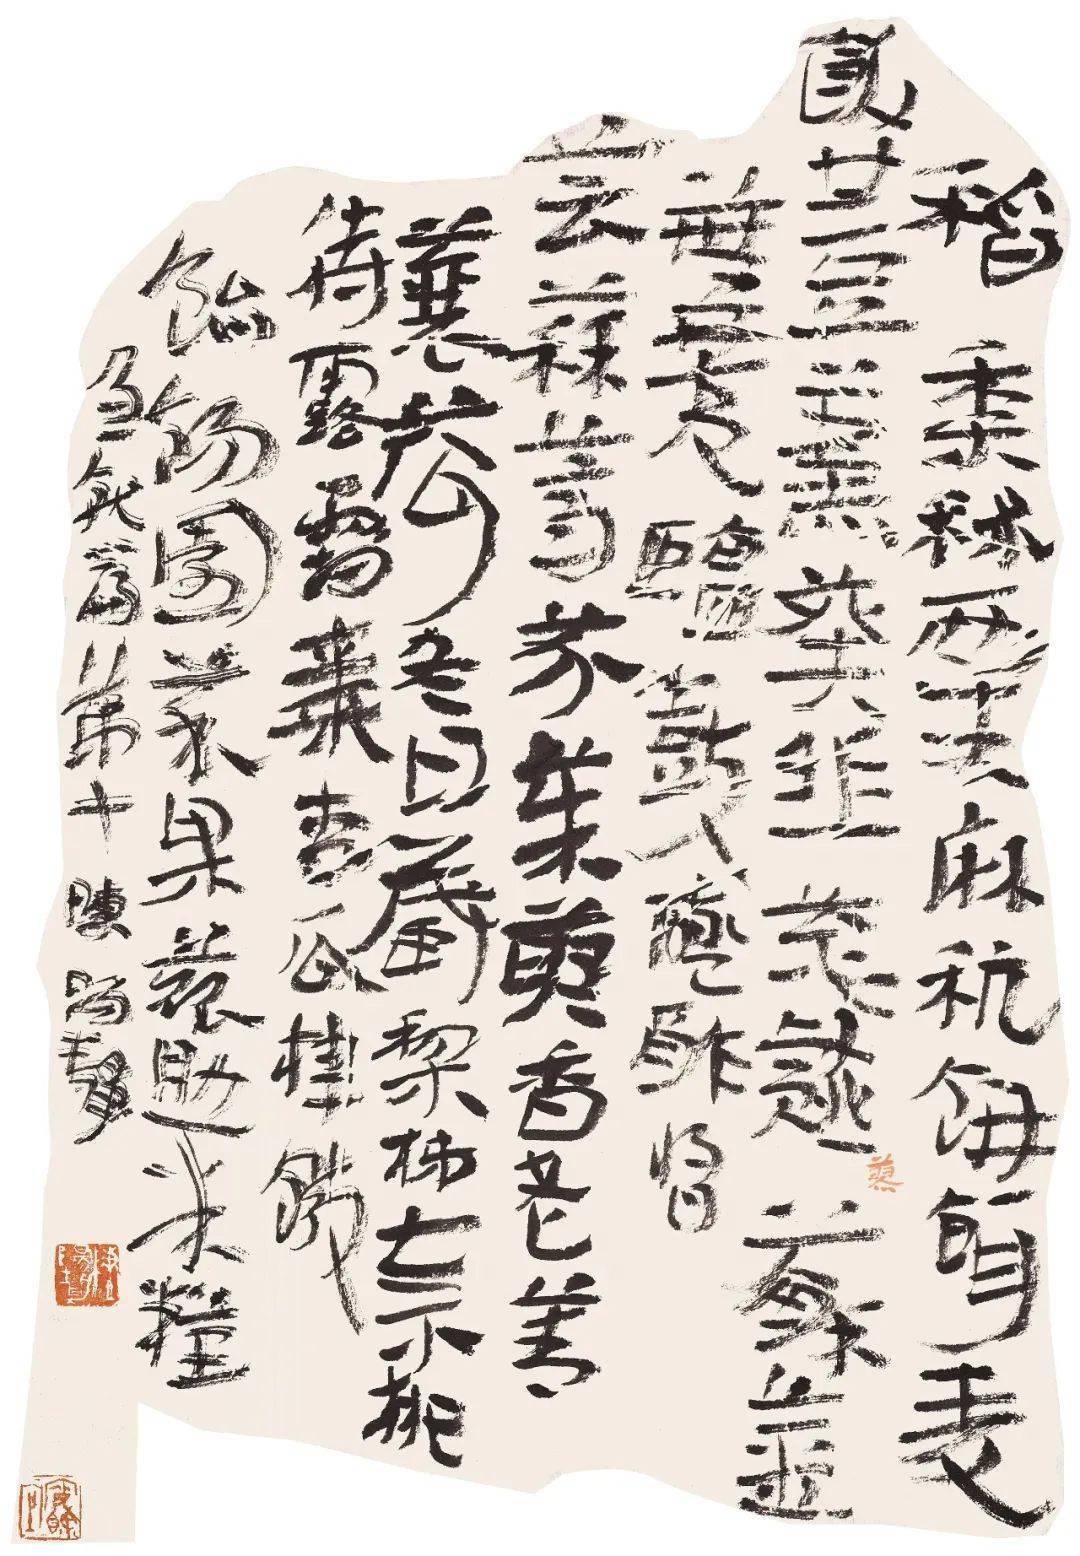 稻黍秫稷粟麻秔餅餌麥
飯甘豆羹葵韭蔥䪥蓼蘇薑
蕪荑鹽豉醯酢醬
芸蒜薺芥茱萸香老菁
蘘荷冬日藏梨柿柰桃
待露霜棗杏瓜棣饊
飴餳園菜果蓏助米糧
急就篇第十陳陽靜